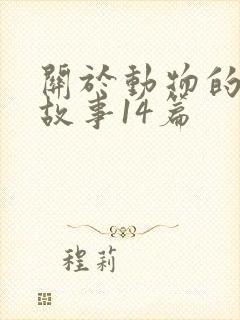 關於動物的
故事14篇
程莉